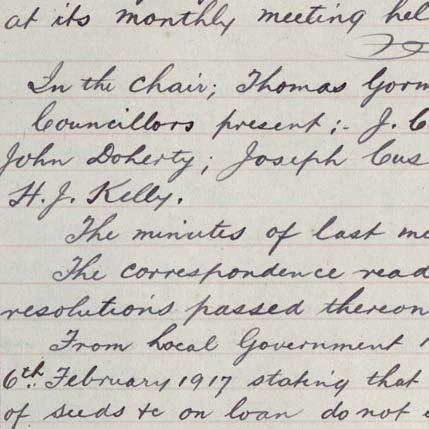 at its monthly meeting hel
In the chair; Thomas Gorm
Councillors present;- J. C
John Doherty; Joseph Cus
H. J. Kelly.
The minutes of last me
The correspondence read
resolutions passed thereon
From Local Government
6th. February 1917 stating that
of seeds &c on loan do not